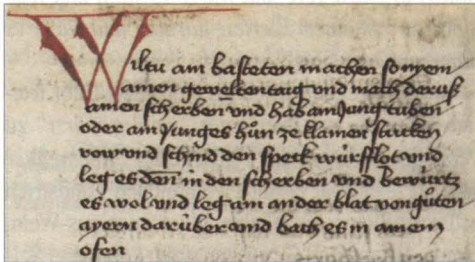 Wiltu am basteten machen so nyem
amen gewelten taig und mach deruß
amen scherben und hab am Jung tuben
oder am Junges hün ze klamen stucken
row und schind den speck würfflot und
leg es denn in den scherben und bewürtz
es wol und leg am ander blat von güten
ayern darüber und bach es in amem
ofen